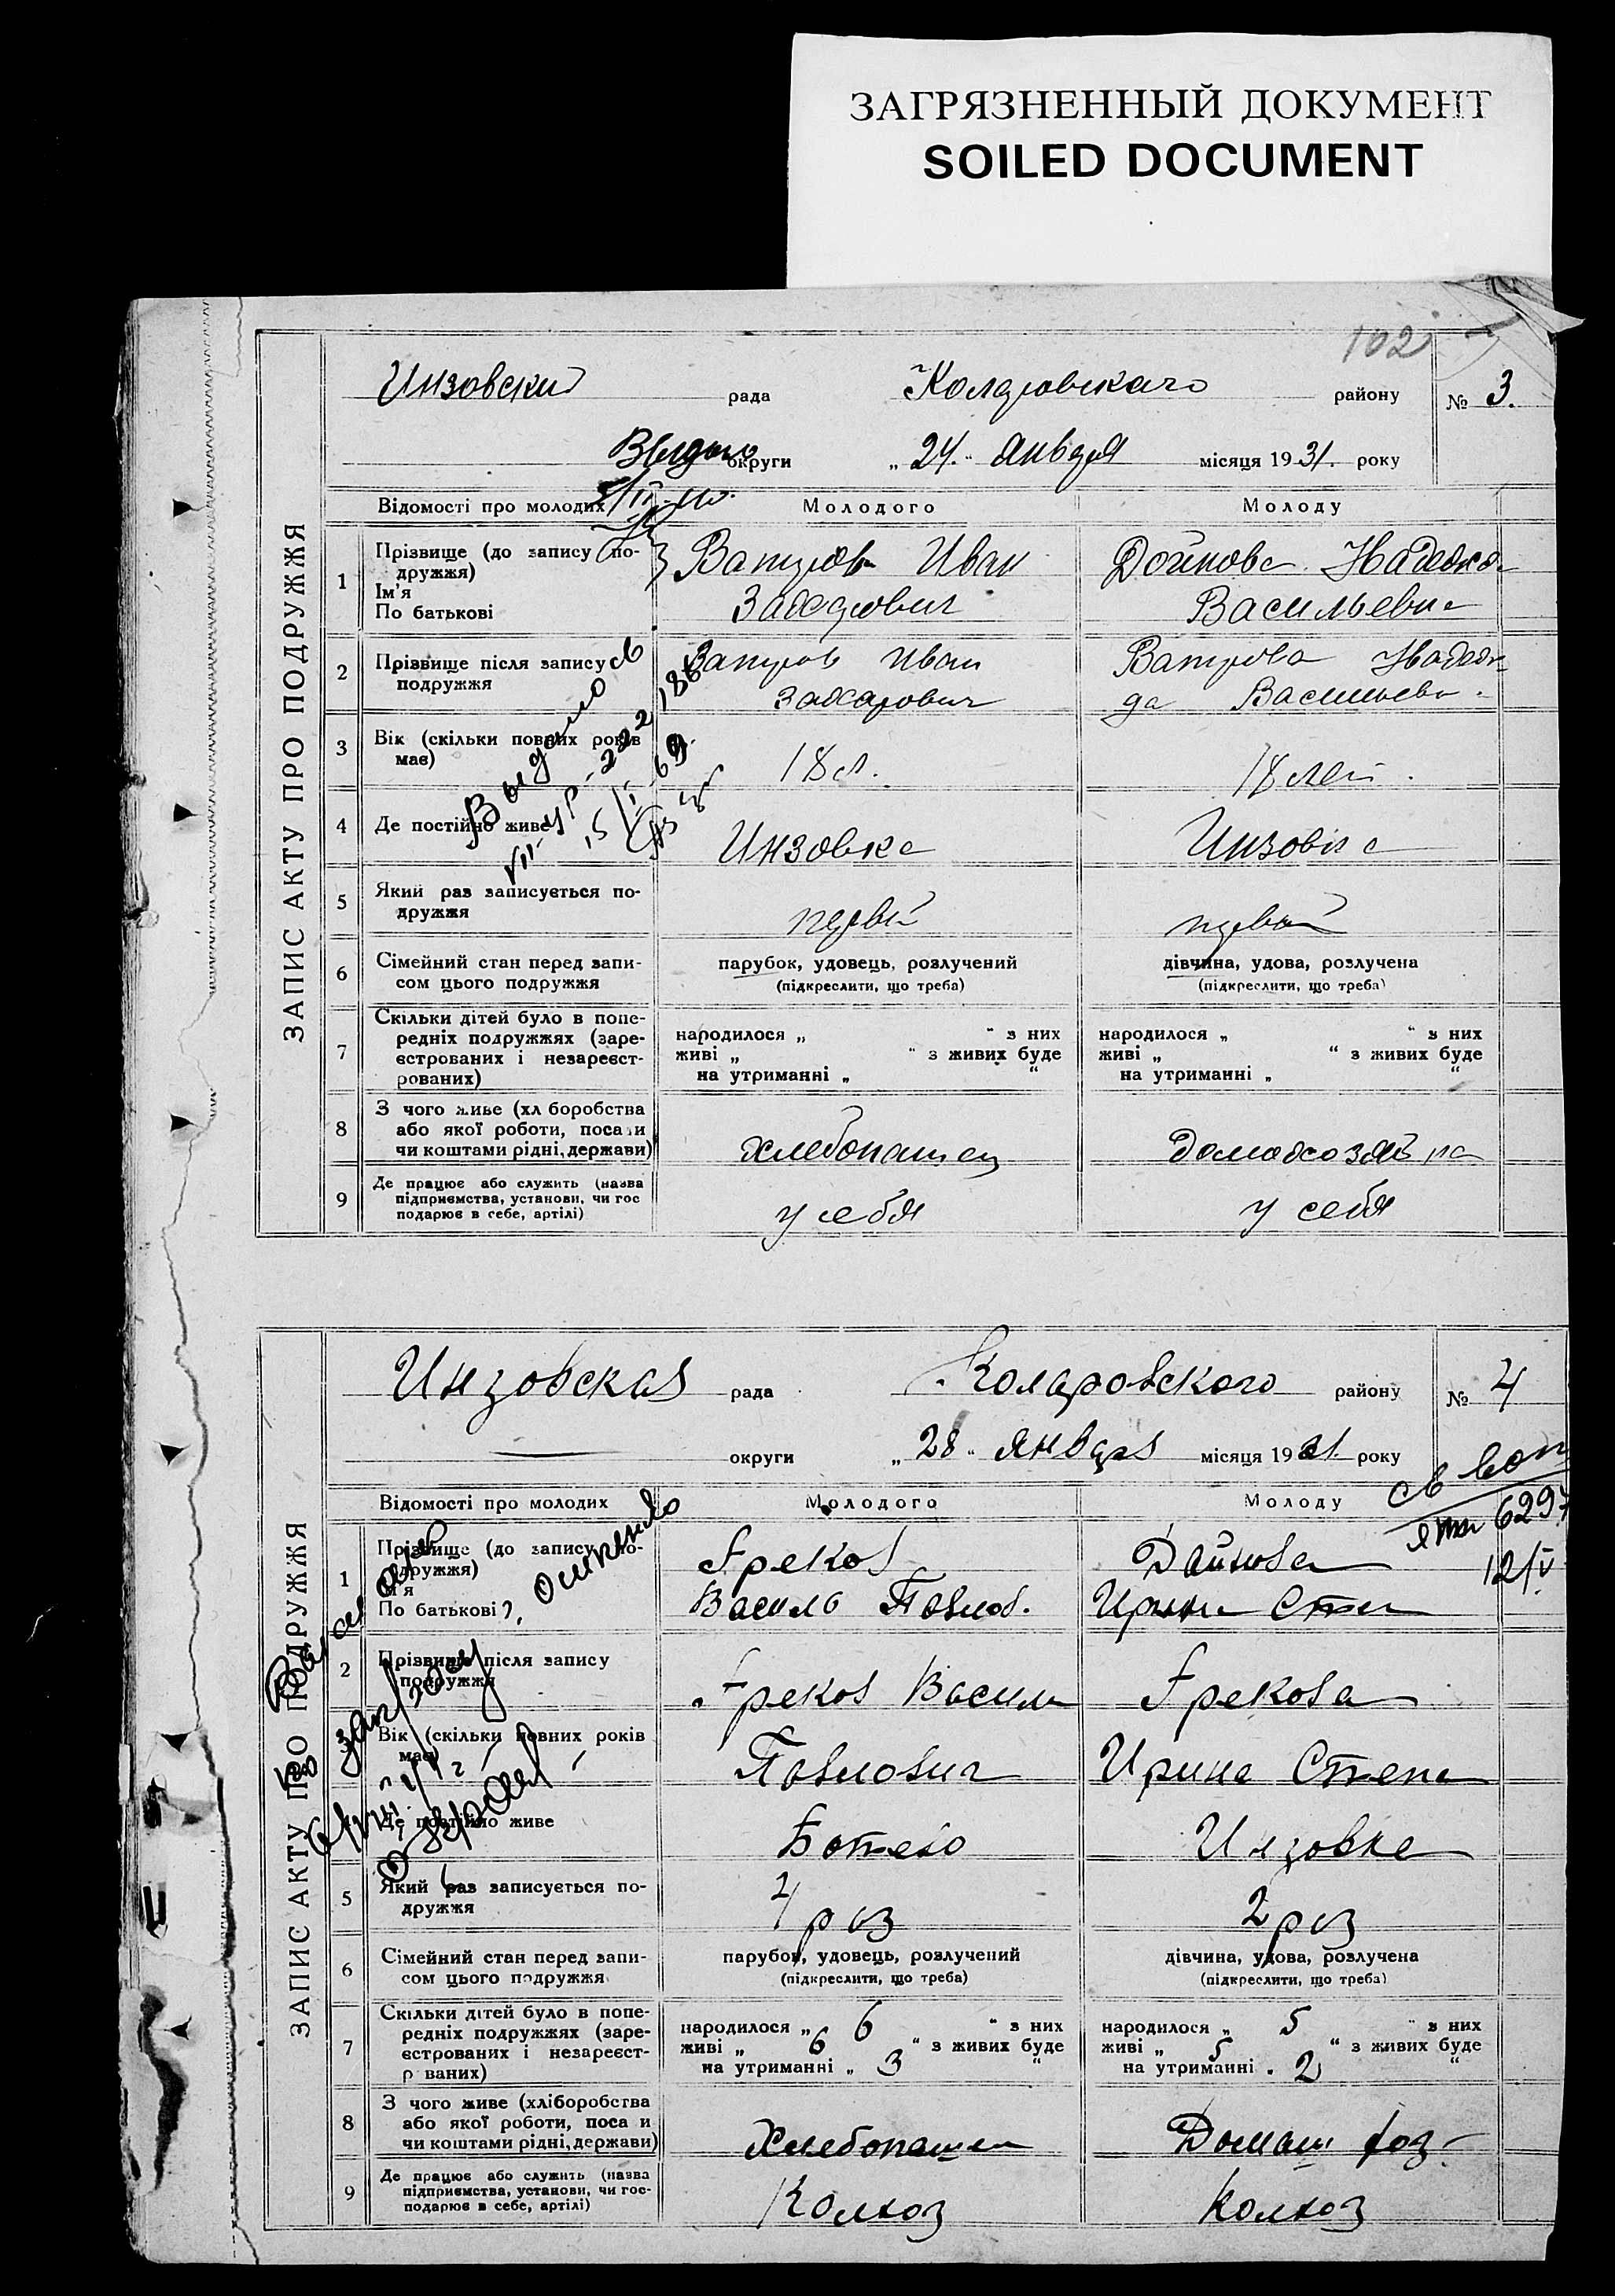 ЗАГРЯЗНЕННЫЙ ДОКУМЕНТ
SOILED DOCUMENT
102
ЗАПИС АКТУ ПРО ПОДРУЖЖЯ
Инзовский рада Коларовскаго району № 3.
Выдано округи „24.“ января місяця 1931. року
Відомості про молодих Молодого Молоду
1 Прізвище (до запису по-
дружжя)
Ім'я
По батькові
Ватров Иван
Захарович
Дойнова Надежда
Васильевна
2 Прізвище після запису
подружжя
Ватров Иван
Захарович
Ватрова Надеж-
да Васильевн.
3 Вік (скільки повних років
має)
18 л. 18 лет.
4 Де постійно живе
Инзовка Инзовка
Выдано св
5 Який раз записується по-
дружжя
первый первый
6 Сімейний стан перед запи-
сом цього подружжя
парубок, удовець, розлучений
(підкреслити, що треба)
дівчина, удова, розлучена
(підкреслити, що треба)
7 Скільки дітей було в попе-
редніх подружжях (заре-
єстрованих і незареєст-
рованих)
народилося „ “ з них
живі „ “ з живих буде
на утриманні „ “
народилося „ “ з них
живі „ “ з живих буде
на утриманні „ “
8 З чого живе (хл боробства
або якої роботи, поса и
чи коштами рідні, держави)
хлебопашец домохозяйка
9 Де працює або служить (назва
підприємства, установи, чи гос
подарює в себе, артілі)
у себя у себя
ЗАПИС АКТУ ПРО ПОДРУЖЖЯ
Инзовская рада Коларовского району № 4
округи „28“ января місяця 1931. року
Відомості про молодих Молодого Молоду
6297
12/V
1 Прізвище (до запису по-
дружжя)
Ім'я
По батькові
Греков
Василь Павлов.
Дайнова
Ирина Степ
2 Прізвище після запису
подружжя
Греков Васили
Грекова
Вік (скільки повних років
має)
Павлович Ирина Степа
Де постійно живе
Ботево Инзовка
5 Який раз записується по-
дружжя
4 раз 2 раз
6 Сімейний стан перед запи-
сом цього подружжя
парубок, удовець, розлучений
(підкреслити, що треба)
дівчина, удова, розлучена
(підкреслити, що треба)
7 Скільки дітей було в попе-
редніх подружжях (заре-
єстрованих і незареєст-
р ваних)
народилося „ 6 “ з них
живі „ 6 “ з живих буде
на утриманні „ 3 “
народилося „ 5 “ з них
живі „ 5 “ з живих буде
на утриманні „ 2 “
8 З чого живе (хліборобства
або якої роботи, поса и
чи коштами рідні, держави)
Хлебопашец Домаш хоз-
9 Де працює або служить (назва
підприємства, установи, чи гос-
подарює в себе, артілі)
Колхоз Колхоз